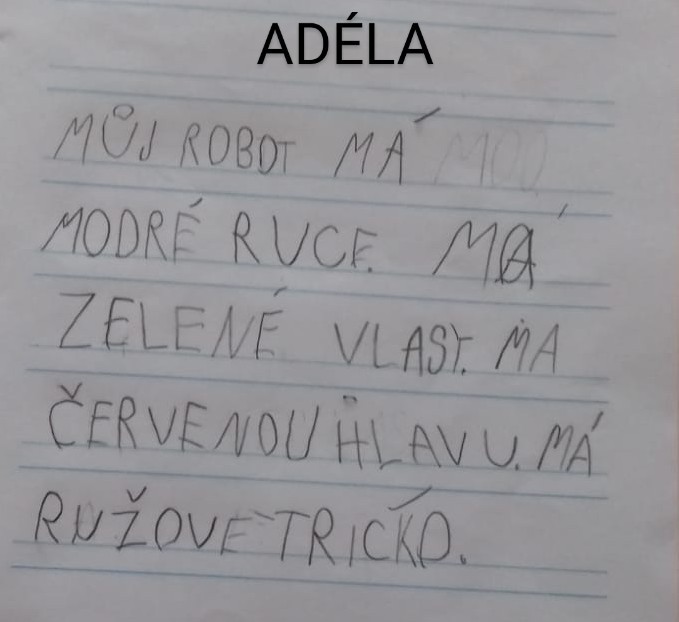 ADÉLA
MŮJ ROBOT MÁ
MODRÉ RUCE. MÁ
ZELENÉ VLASY. MA
ČERVENOU HLAVU. MÁ
RUŽOVE TRIČKO.